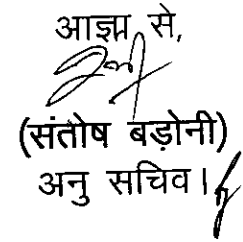 आज्ञा से,
(संतोष बड़ोनी)
अनु सचिव।